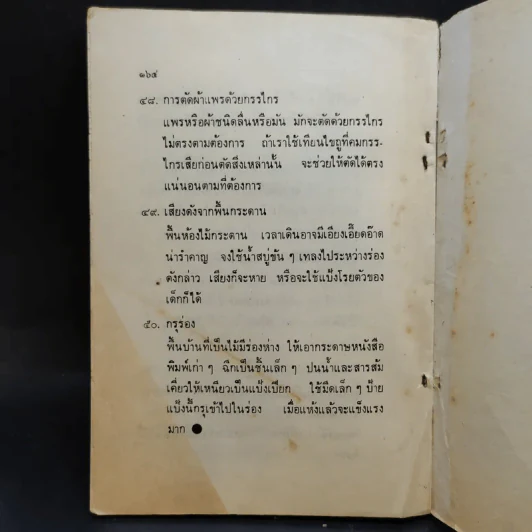 ๑๖๔
๔๘. การตัดผ้าแพรด้วยกรรไกร
แพรหรือผ้าชนิดลื่นหรือมัน มักจะตัดด้วยกรรไกร
ไม่ตรงตามต้องการ ถ้าเราใช้เทียนไขถูที่คมกรร-
ไกรเสียก่อนตัดสิ่งเหล่านั้น จะช่วยให้ตัดได้ตรง
แน่นอนตามที่ต้องการ
๔๙. เสียงดังจากพื้นกระดาน
พื้นห้องไม้กระดาน เวลาเดินอาจมีเอียงเอี๊ยดอ๊าด
น่ารำคาญ จงใช้น้ำสบู่ข้น ๆ เทลงไประหว่างร่อง
ดังกล่าว เสียงก็จะหาย หรือจะใช้แป้งโรยตัวของ
เด็กก็ได้
๕๐. กรุร่อง
พื้นบ้านที่เป็นไม้มีร่องห่าง ให้เอากระดาษหนังสือ
พิมพ์เก่า ๆ ฉีกเป็นชิ้นเล็ก ๆ ปนน้ำและสารส้ม
เคี่ยวให้เหนียวเป็นแป้งเปียก ใช้มีดเล็ก ๆ ป้าย
แป้งนี้กรุเข้าไปในร่อง เมื่อแห้งแล้วจะแข็งแรง
มาก ●